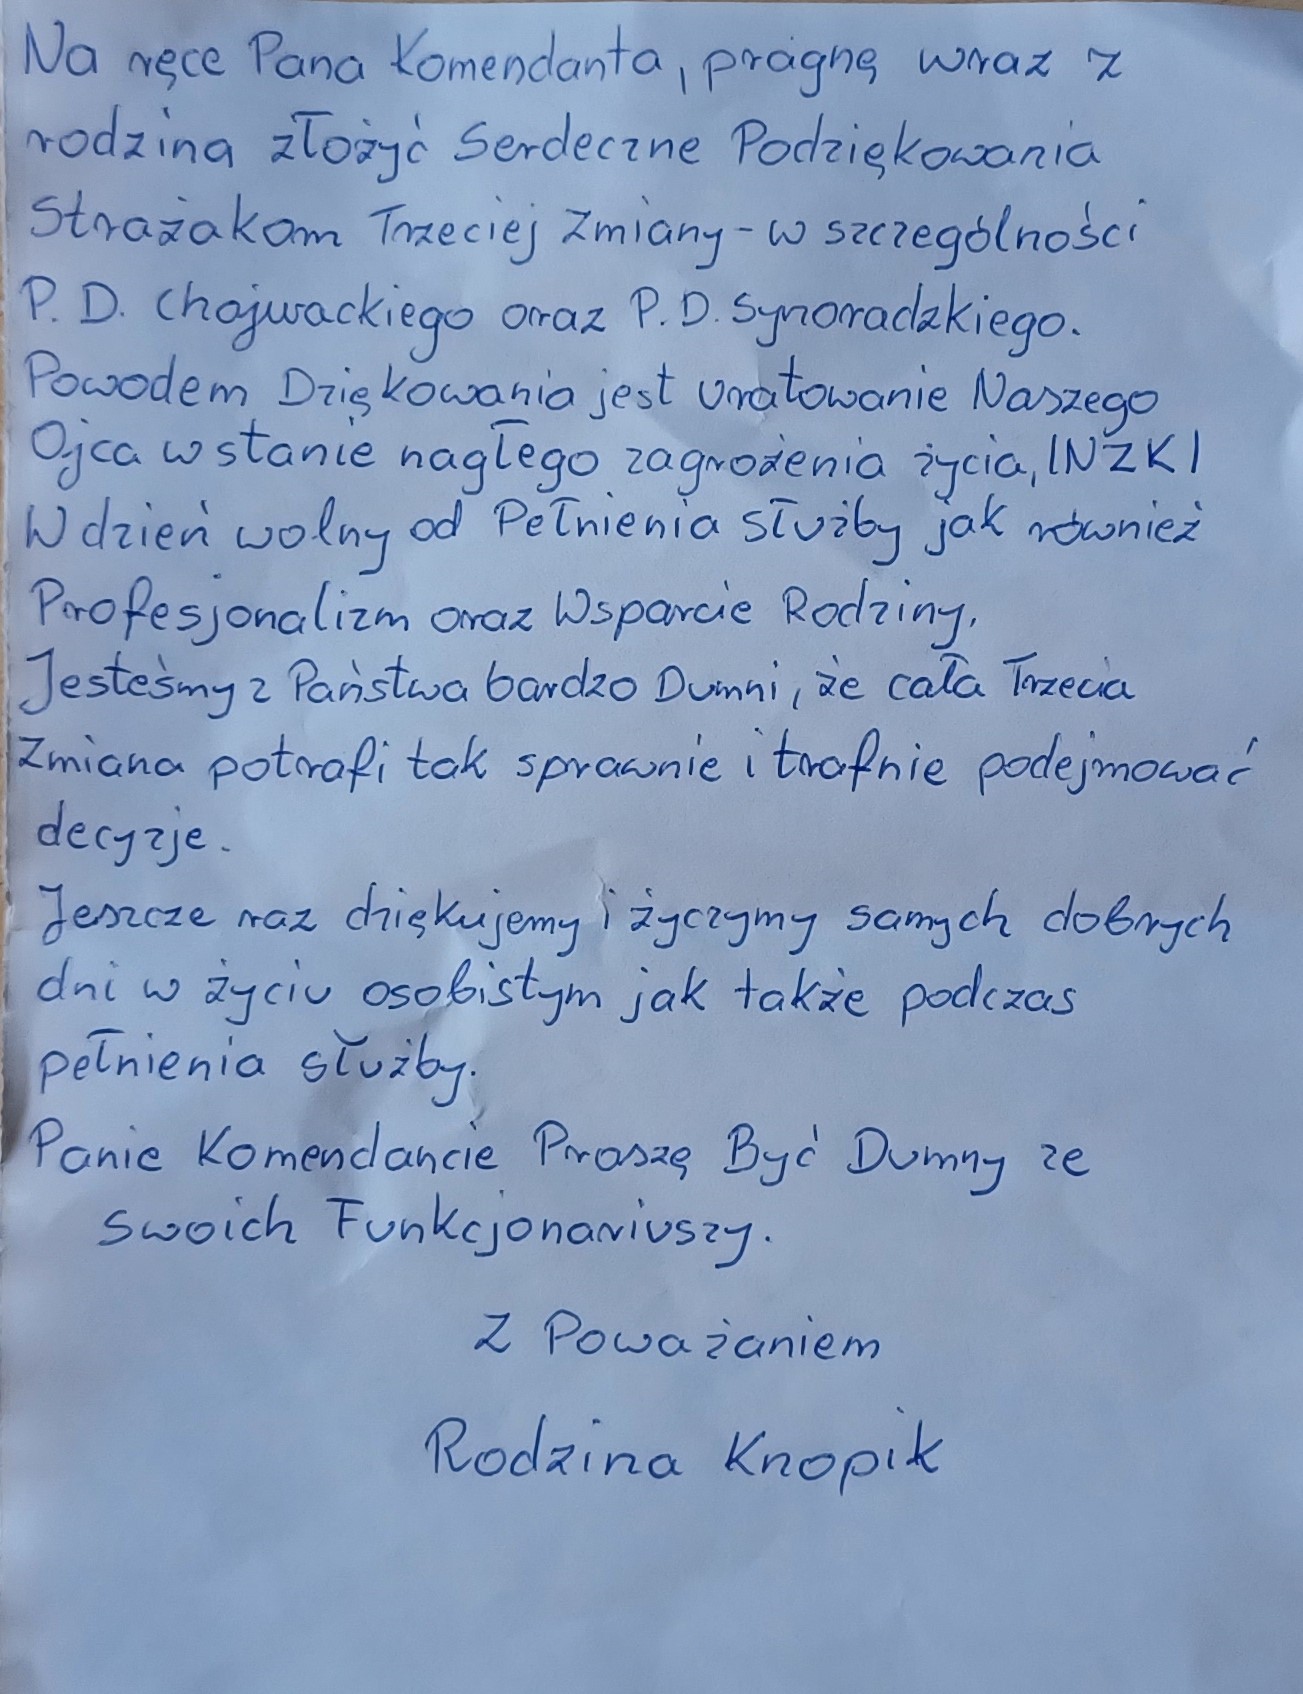 Na ręce Pana Komendanta, pragnę wraz z
rodzina złożyć Serdeczne Podziękowania
Strażakom Trzeciej Zmiany - w szczególności
P. D. Chojwackiego oraz P. D. Synoradzkiego.
Powodem Dziękowania jest uratowanie Naszego
Ojca w stanie nagłego zagrożenia życia, /NZK/
W dzień wolny od Pełnienia służby jak również
Profesjonalizm oraz Wsparcie Rodziny.
Jesteśmy z Państwa bardzo Dumni, że cała Trzecia
Zmiana potrafi tak sprawnie i trafnie podejmować
decyzje.
Jeszcze raz dziękujemy i życzymy samych dobrych
dni w życiu osobistym jak także podczas
pełnienia służby.
Panie Komendancie Proszę Być Dumny ze
swoich Funkcjonariuszy.
Z Poważaniem
Rodzina Knopik